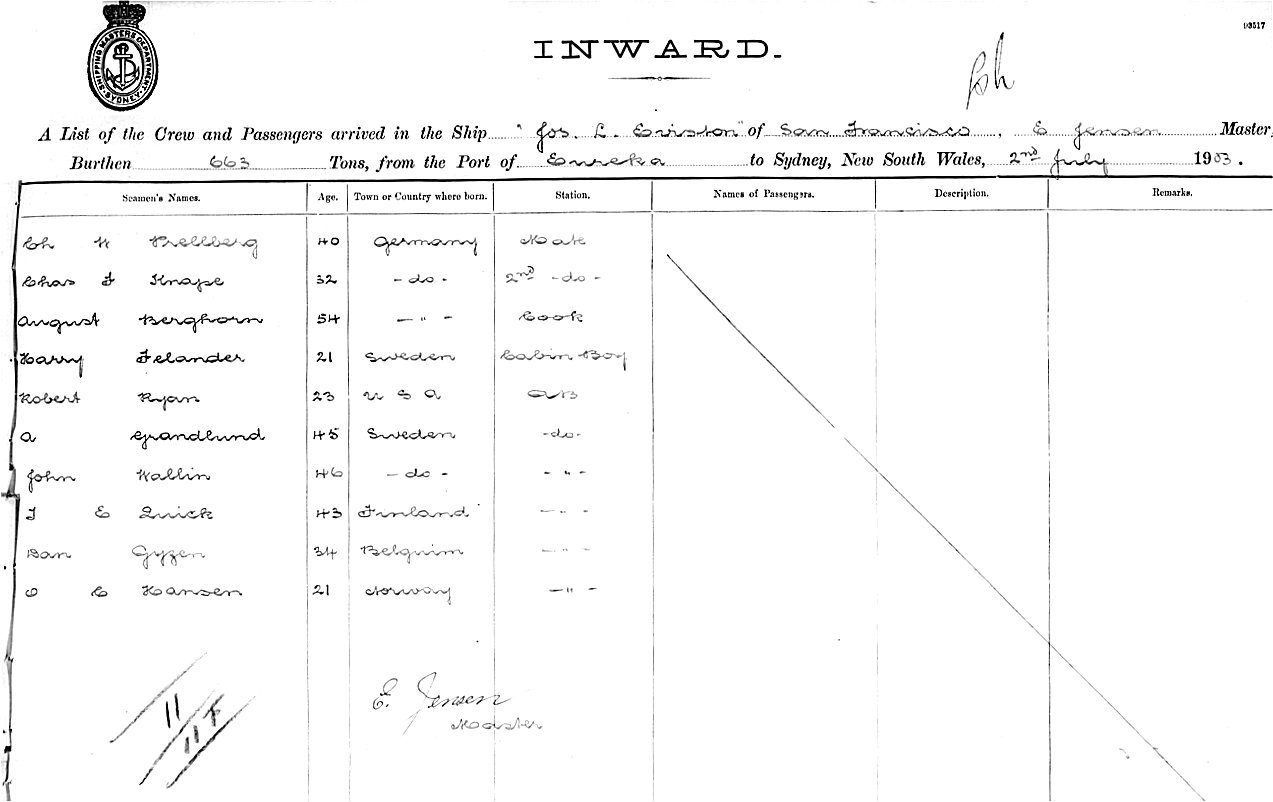 93517
SHIPPING MASTERS DEPARTMENT SYDNEY
INWARD.
A List of the Crew and Passengers arrived in the Ship "Jos. L. Eviston" of San Francisco, E Jensen Master,
Burthen 663 Tons, from the Port of Eureka to Sydney, New South Wales, 2nd July 1903.
Seamen's Names. Age. Town or Country where born. Station. Names of Passengers. Description. Remarks.
Ch W Prellberg 40 Germany Mate
Chas F Knape 32 -do- 2nd -do-
August Berghorn 54 -"- Cook
Harry Felander 21 Sweden Cabin Boy
Robert Ryan 23 U S A AB
A Grandlund 45 Sweden -do-
John Wallin 46 -do- -"-
J E Quick 43 Finland -"-
Dan Gyzen 34 Belguim -"-
O C Hansen 21 Norway -"-
E. Jensen
Master
11
11